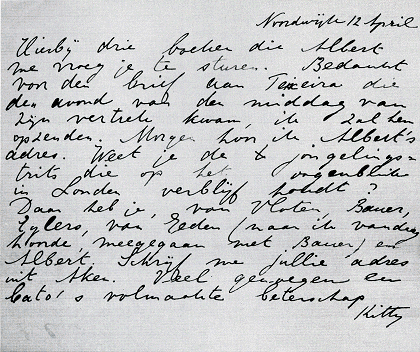 Noordwijk 12 April
Hierbij drie boeken die Albert
me vroeg je te sturen. Bedankt
voor den brief van Texeira die
den avond van den middag van
zijn vertrek kwam, ik zal hem
opzenden. Morgen hoor ik Albert's
adres. Weet je de & jongelings-
trits die op het oogenblik
in Londen verblijf houdt?
Daar heb je, van Vloten, Bauer,
van Eeden (naar ik vandaag
hoorde, meegegaan met Bauer) en
Albert. Schrijf me jullie adres
uit Aken. Veel genoegen en
Cato's volmaakte beterschap
Kitty